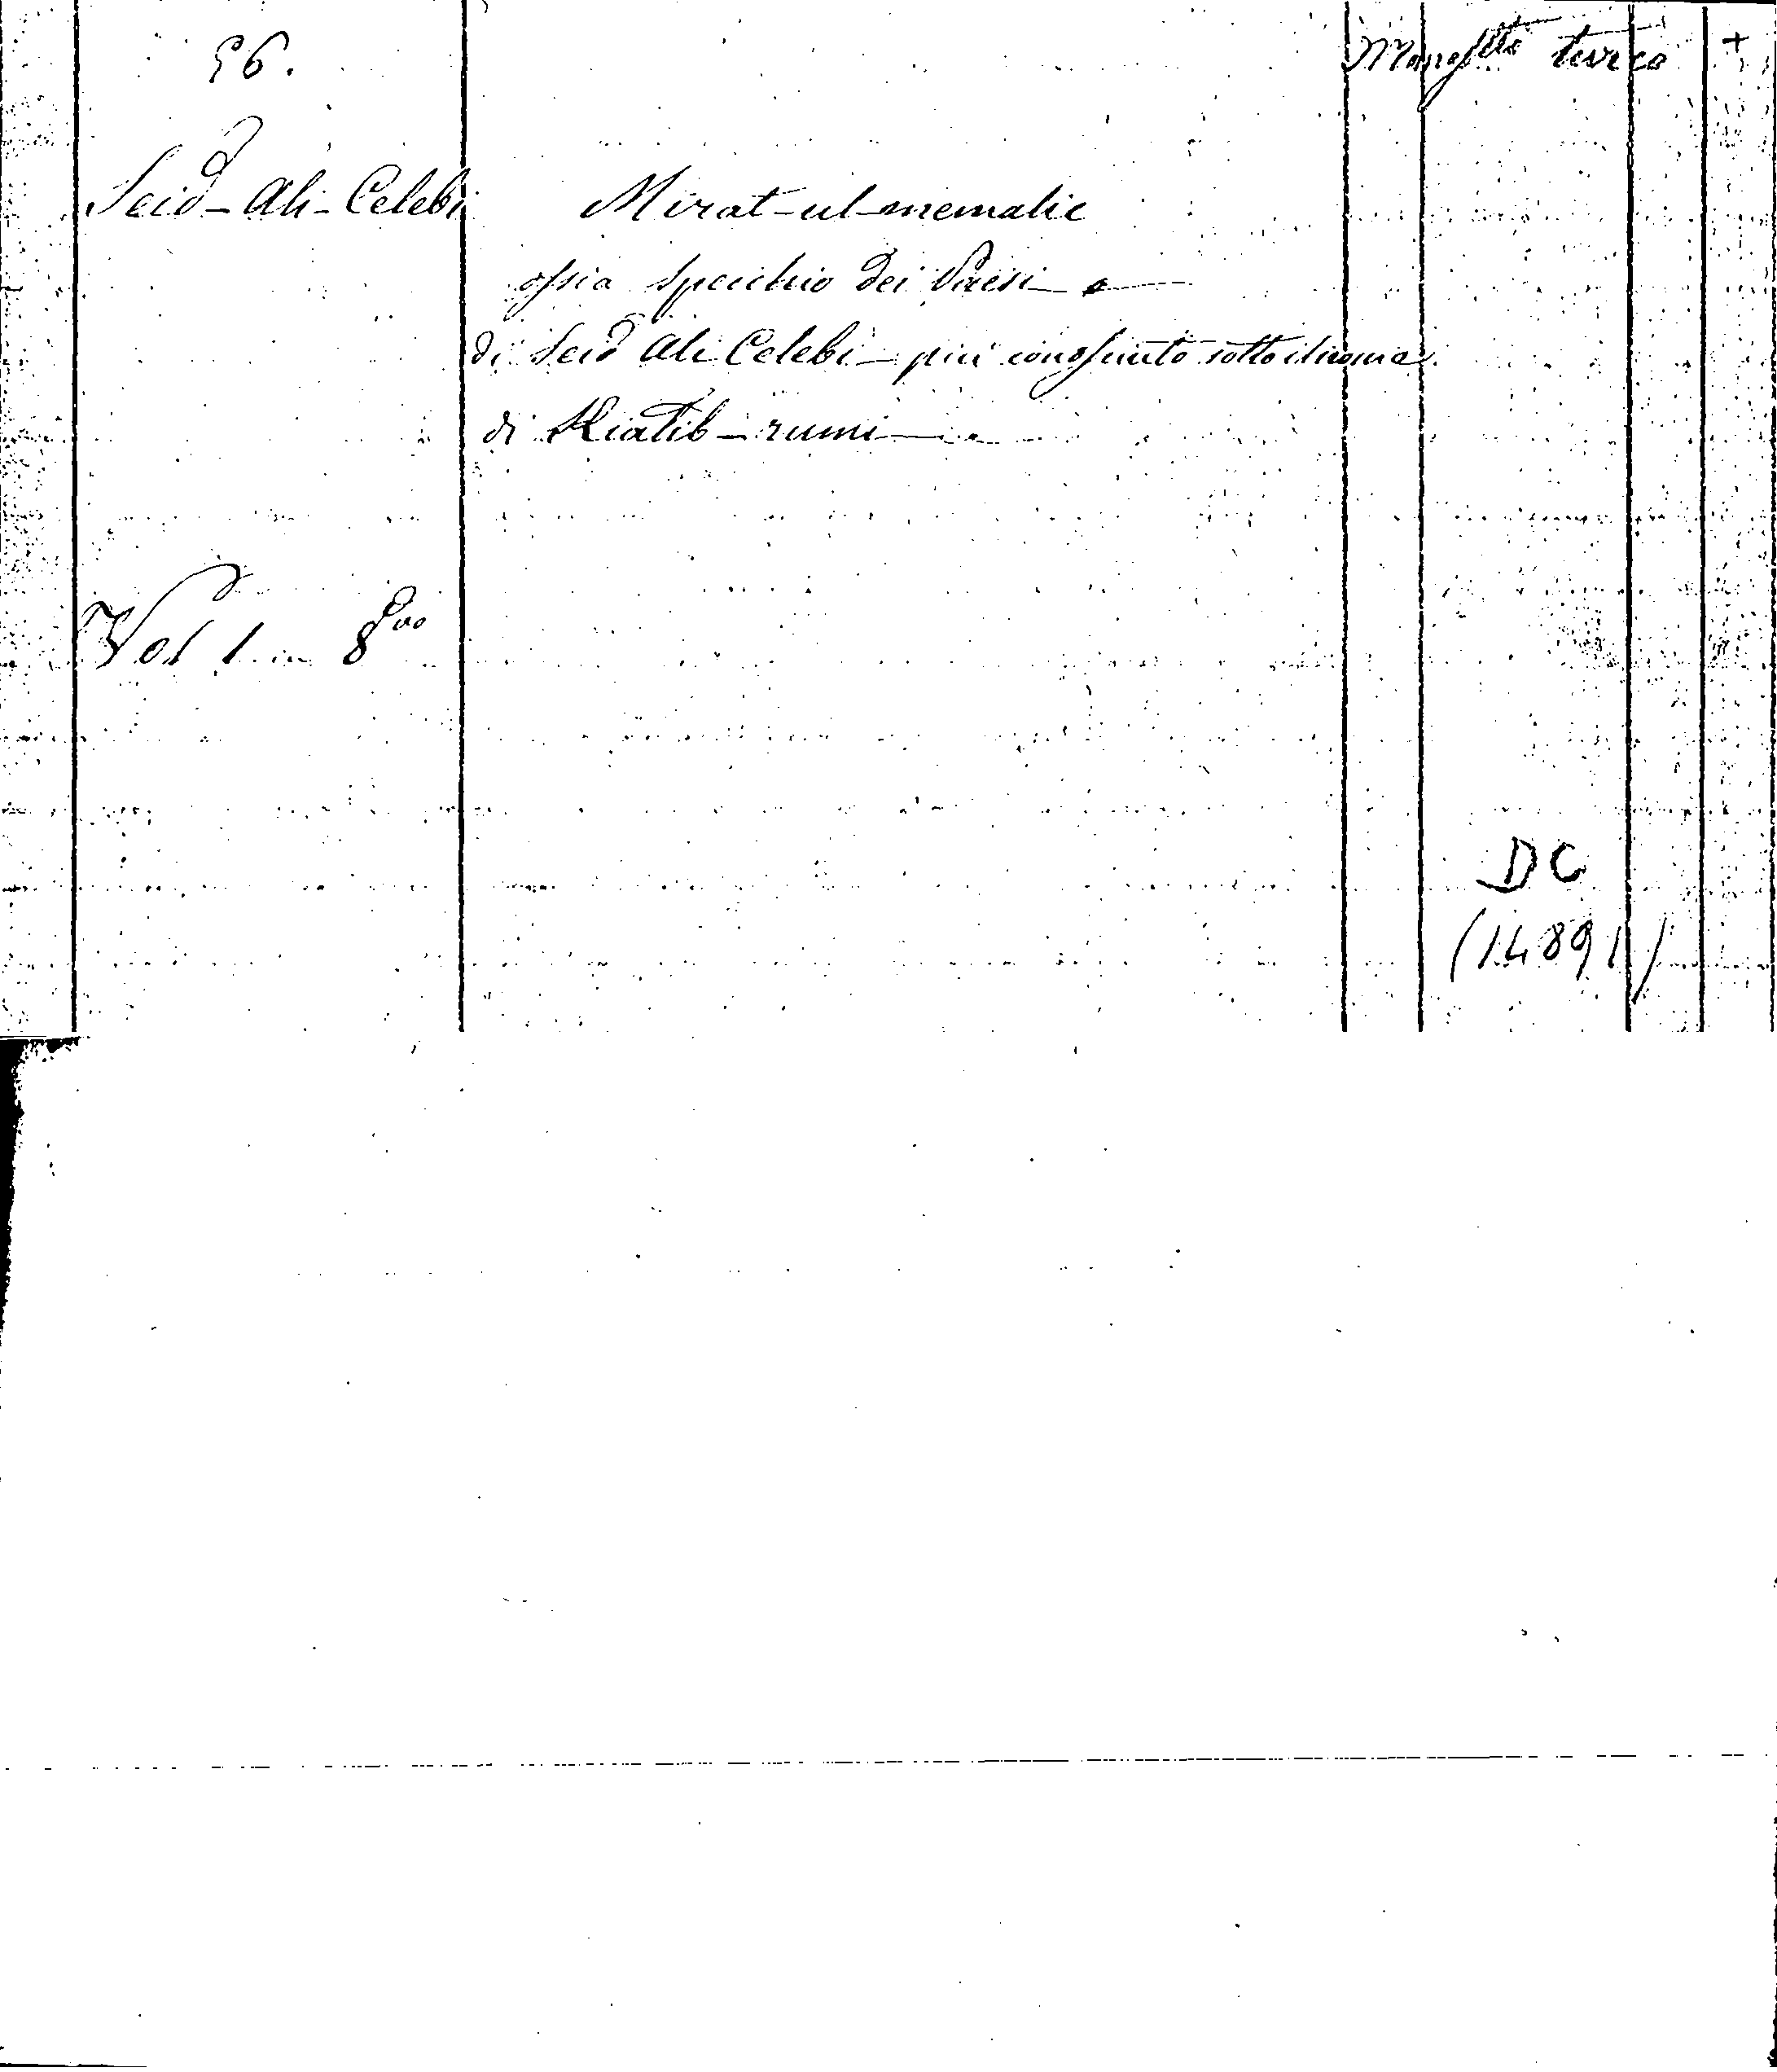 56.
Manos.tto turco +
Seid-Ali-Celebi
Mirat-ul-memalic
ossia specchio dei Paesi
di Seid Ali Celebi - più conosciuto sotto il nome
di Kiatib-rumi
Vol 1 in 8vo
DC
(14891)